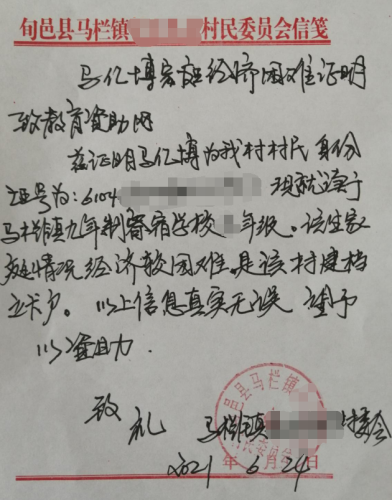 旬邑县马栏镇 村民委员会信笺
马亿博家庭经济困难证明
致教育资助网
兹证明马亿博为我村村民身份
证号为:6104 现就读于
马栏镇九年制寄宿学校 年级。该生家
庭情况经济较困难,是该村建档
立卡户。以上信息真实无误 望予
以资助.
致
礼
马栏镇 村委会
2021年6月24日
旬邑县马栏镇 村民委员会